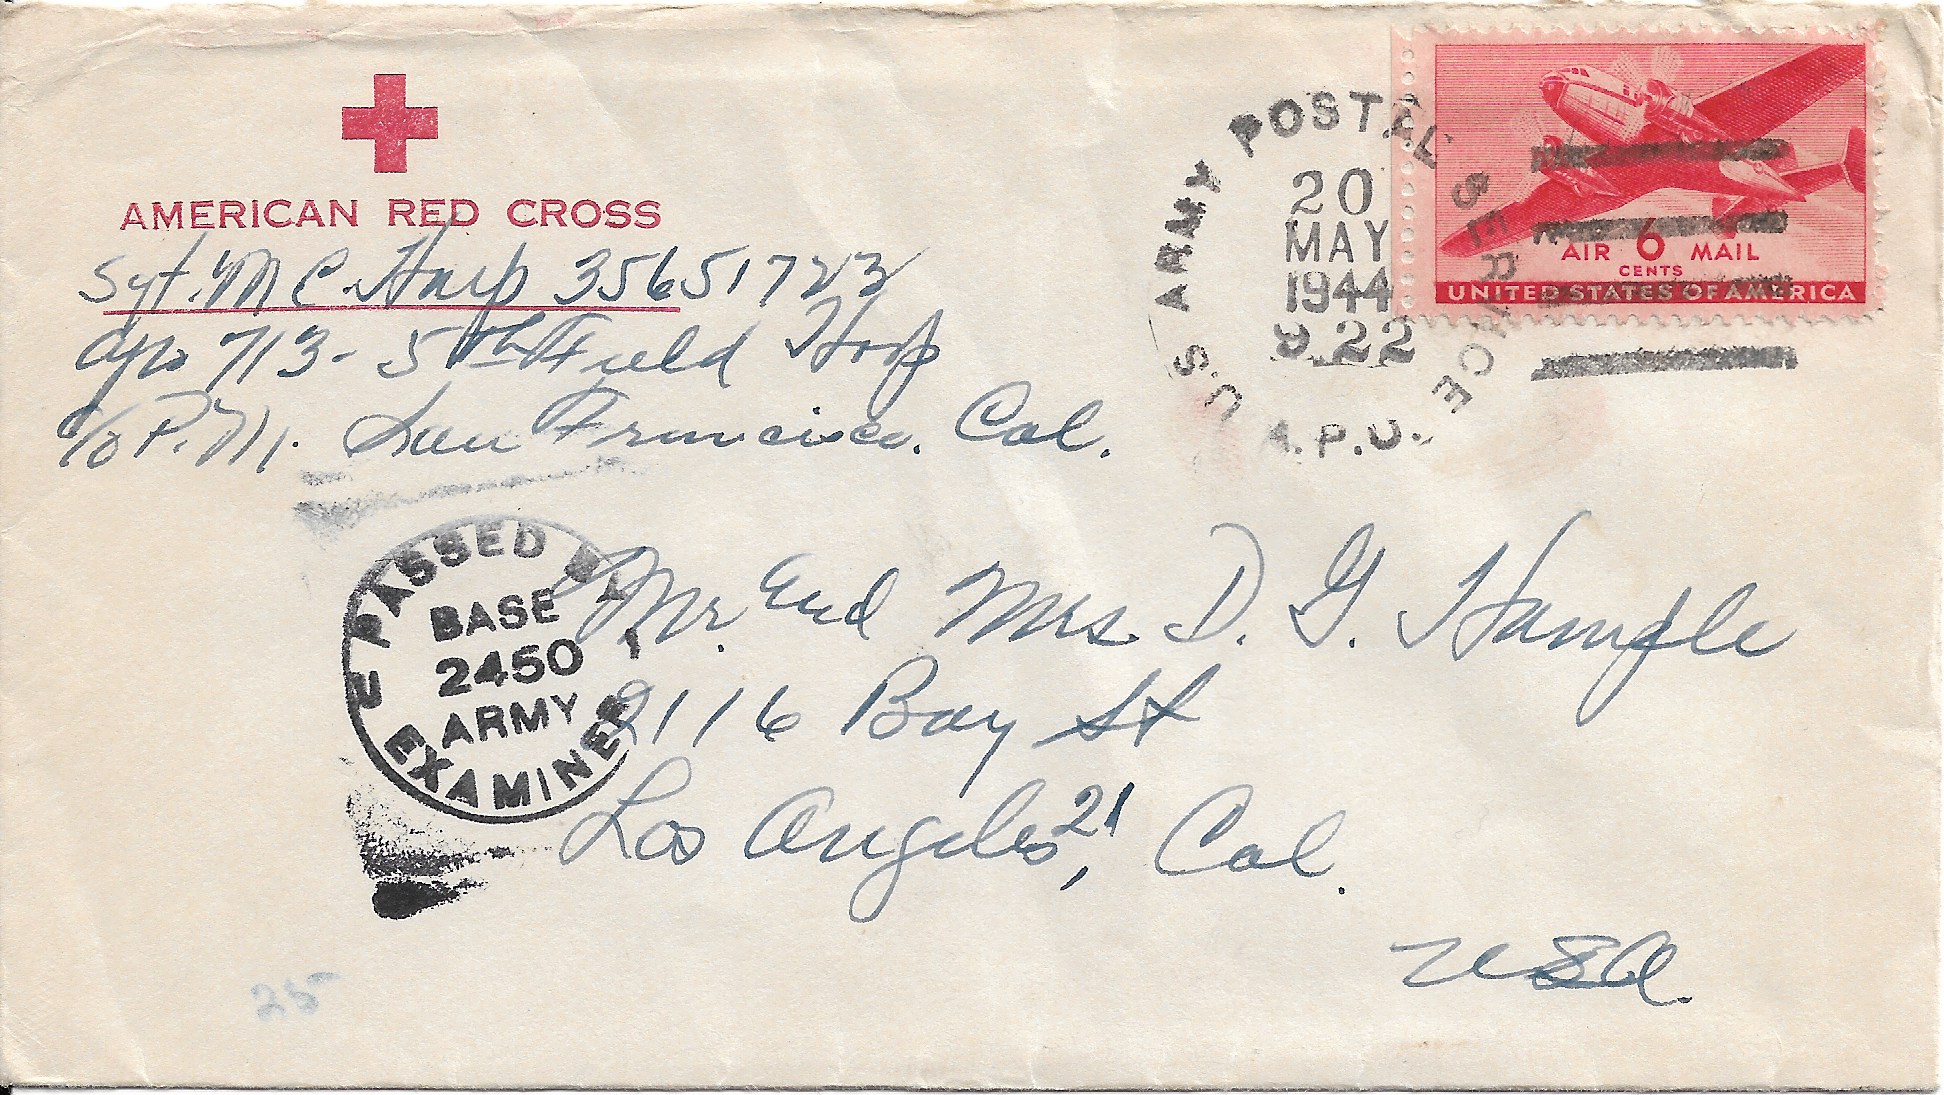 AMERICAN RED CROSS
Sgt. M C. Harp 35651723
Apo 713 - 5th Field Hosp
C/o P.M. San Francisco. Cal.
U.S. ARMY POSTAL SERVICE
A.P.O.
20
MAY
1944
9 22
AIR 6 MAIL
CENTS
UNITED STATES OF AMERICA
PASSED BY
BASE
2450
ARMY
EXAMINER
Mr. and Mrs. D. G. Hample
2116 Bay St
Los Angeles 21, Cal.
USA.
25